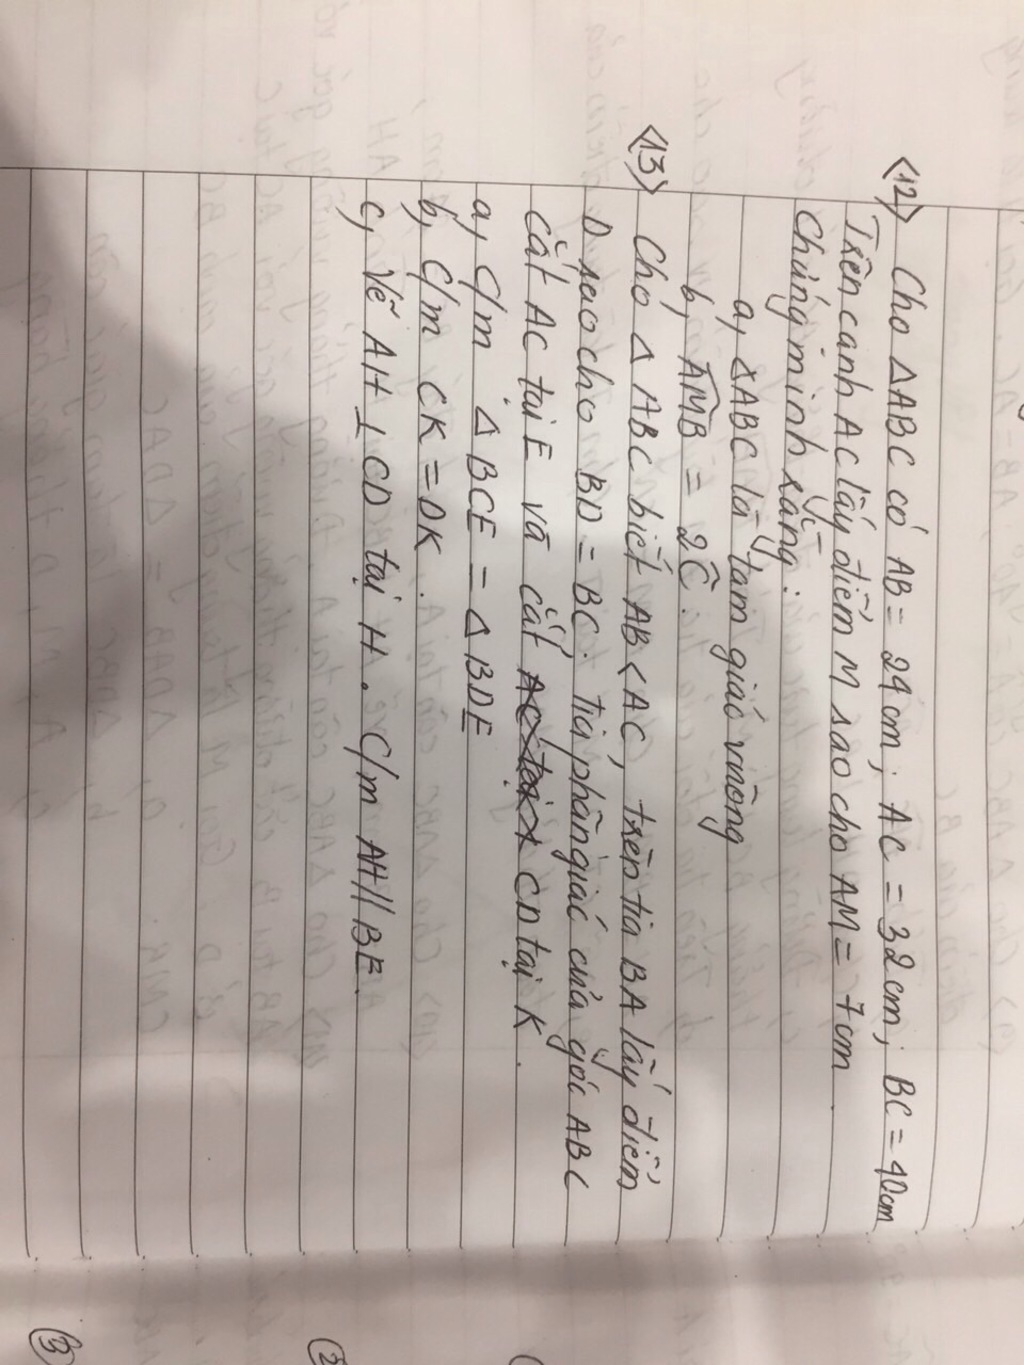 <12> Cho ΔABC có AB = 24cm; AC = 32cm; BC = 40cm
Trên cạnh AC lấy điểm M sao cho AM = 7cm
Chứng minh rằng:
a, ΔABC là tam giác vuông
b, AMB = 2Ĉ.
<13> Cho Δ ABC biết AB < AC, trên tia BA lấy điểm
D sao cho BD = BC. Tia phân giác của góc ABC
cắt AC tại E và cắt CD tại K.
a, C/m Δ BCE = Δ BDE
b, C/m CK = DK.
c, Vẽ AH ⊥ CD tại H. C/m AH // BE.
(2
(3)